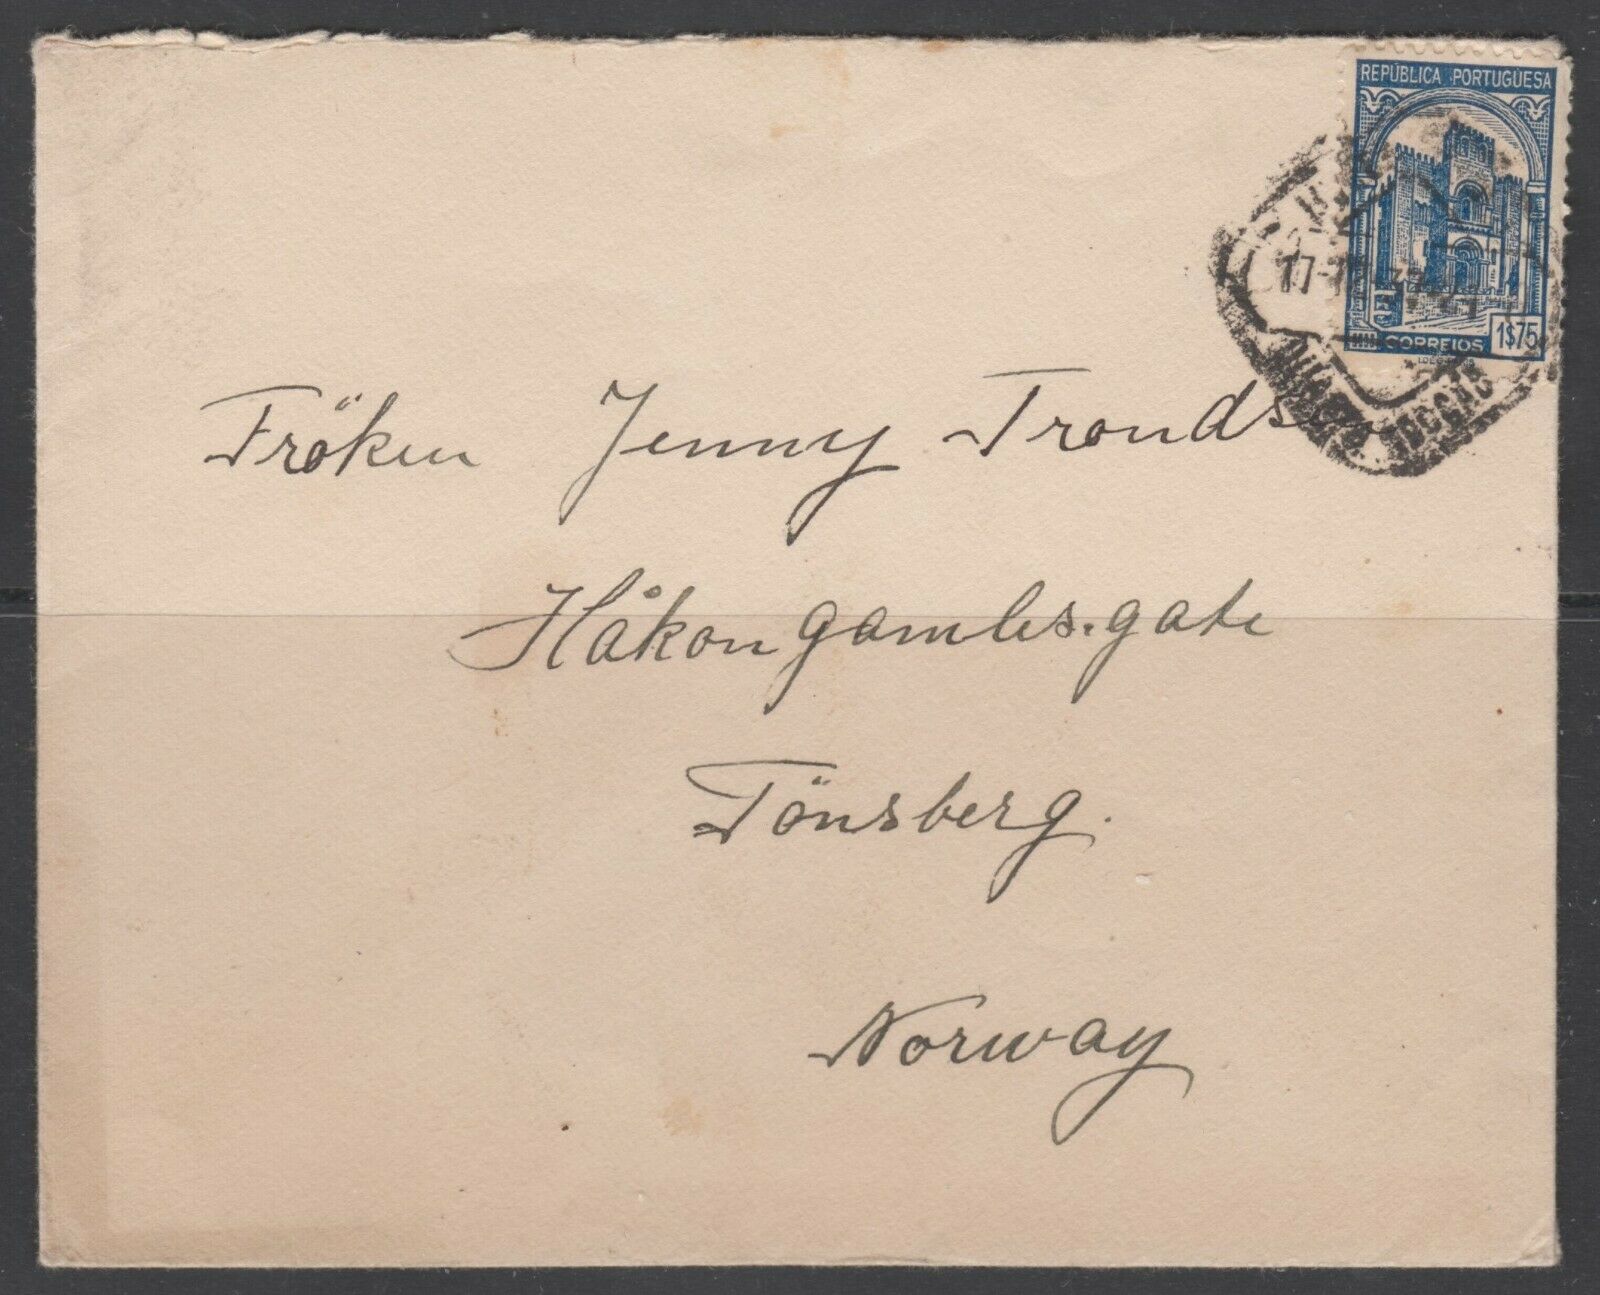 REPÚBLICA PORTUGUESA
1$75
CORREIOS
17-
Fröken Jenny Trondsen
Håkon gamles.gate
Tönsberg.
Norway